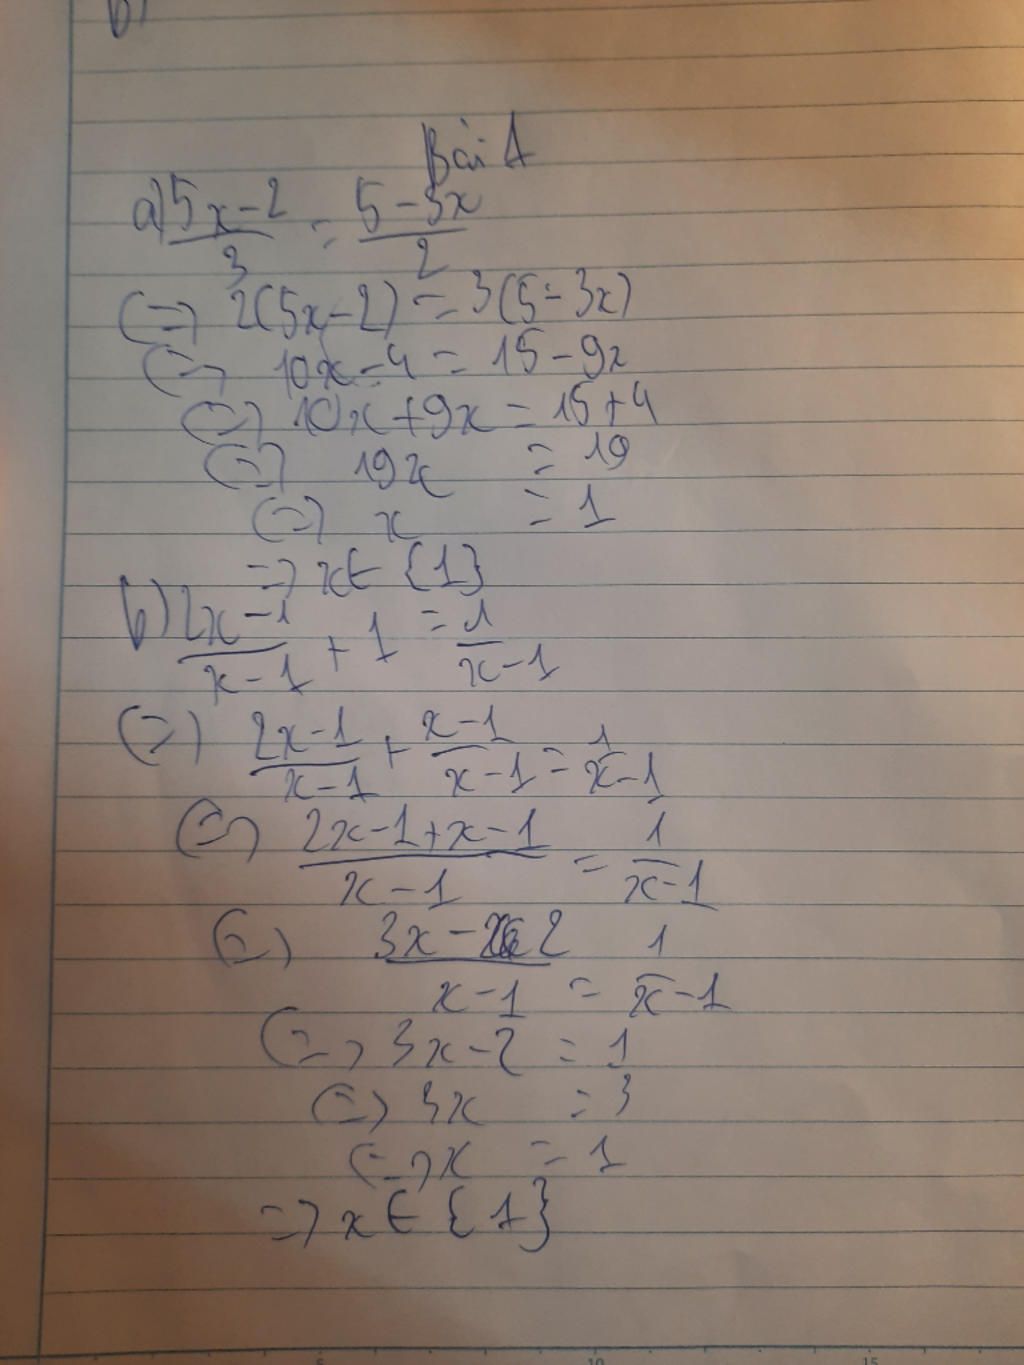 b)
Bài 1
a) 5x-2/3 = 5-3x/2
(=) 2(5x-2) = 3(5-3x)
(=) 10x-4 = 15-9x
(=) 10x+9x = 15+4
(=) 19x = 19
(=) x = 1
=> x∈ {1}
b) 2x-1/x-1 + 1 = 1/x-1
(=) 2x-1/x-1 + x-1/x-1 = 1/x-1
(=) 2x-1+x-1/x-1 = 1/x-1
(=) 3x-2/x-1 = 1/x-1
(=) 3x-2 = 1
(=) 3x = 3
(=) x = 1
=> x∈ {1}
5 10 15